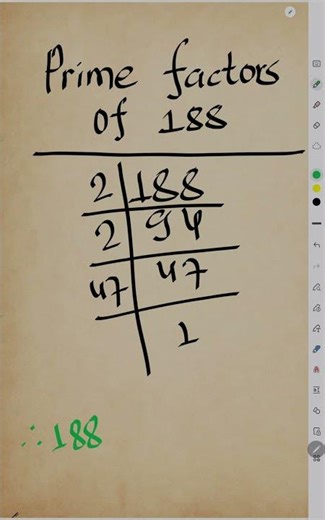 Prime factors
of 188
2 188
2 94
47 47
1
∴ 188